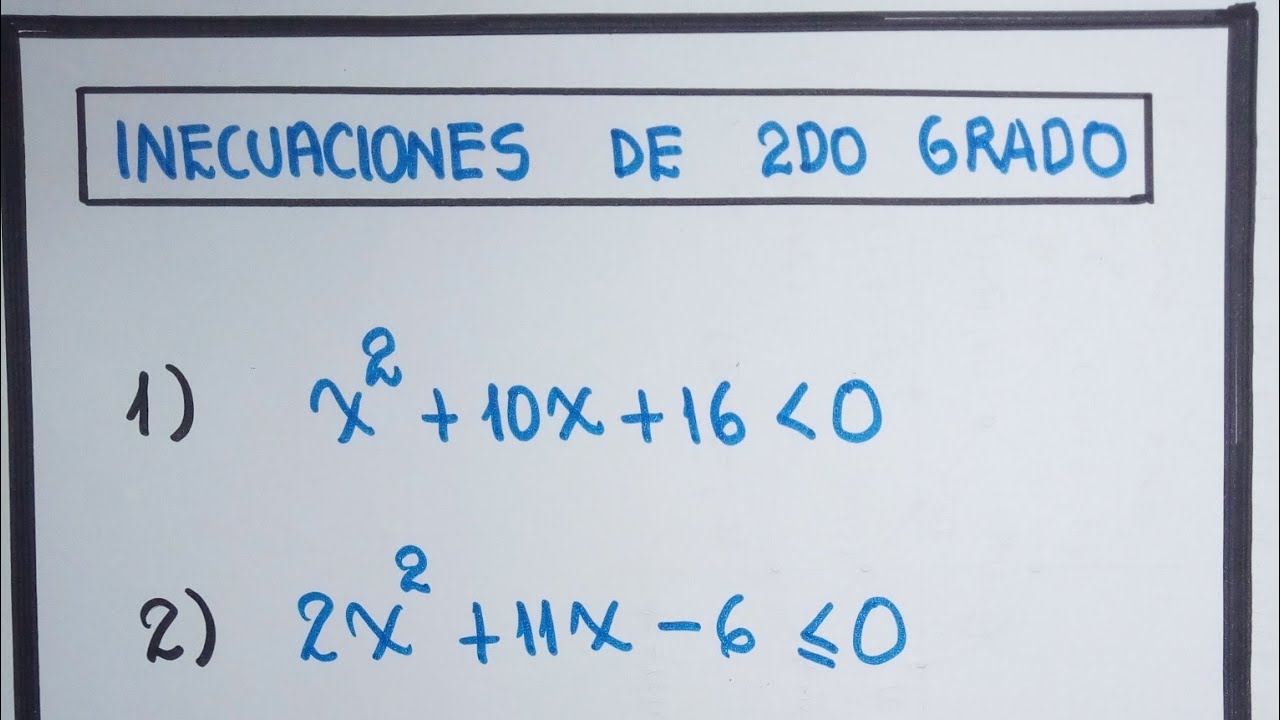 INECUACIONES DE 2DO GRADO
1) x² + 10x + 16 < 0
2) 2x² + 11x - 6 ≤ 0